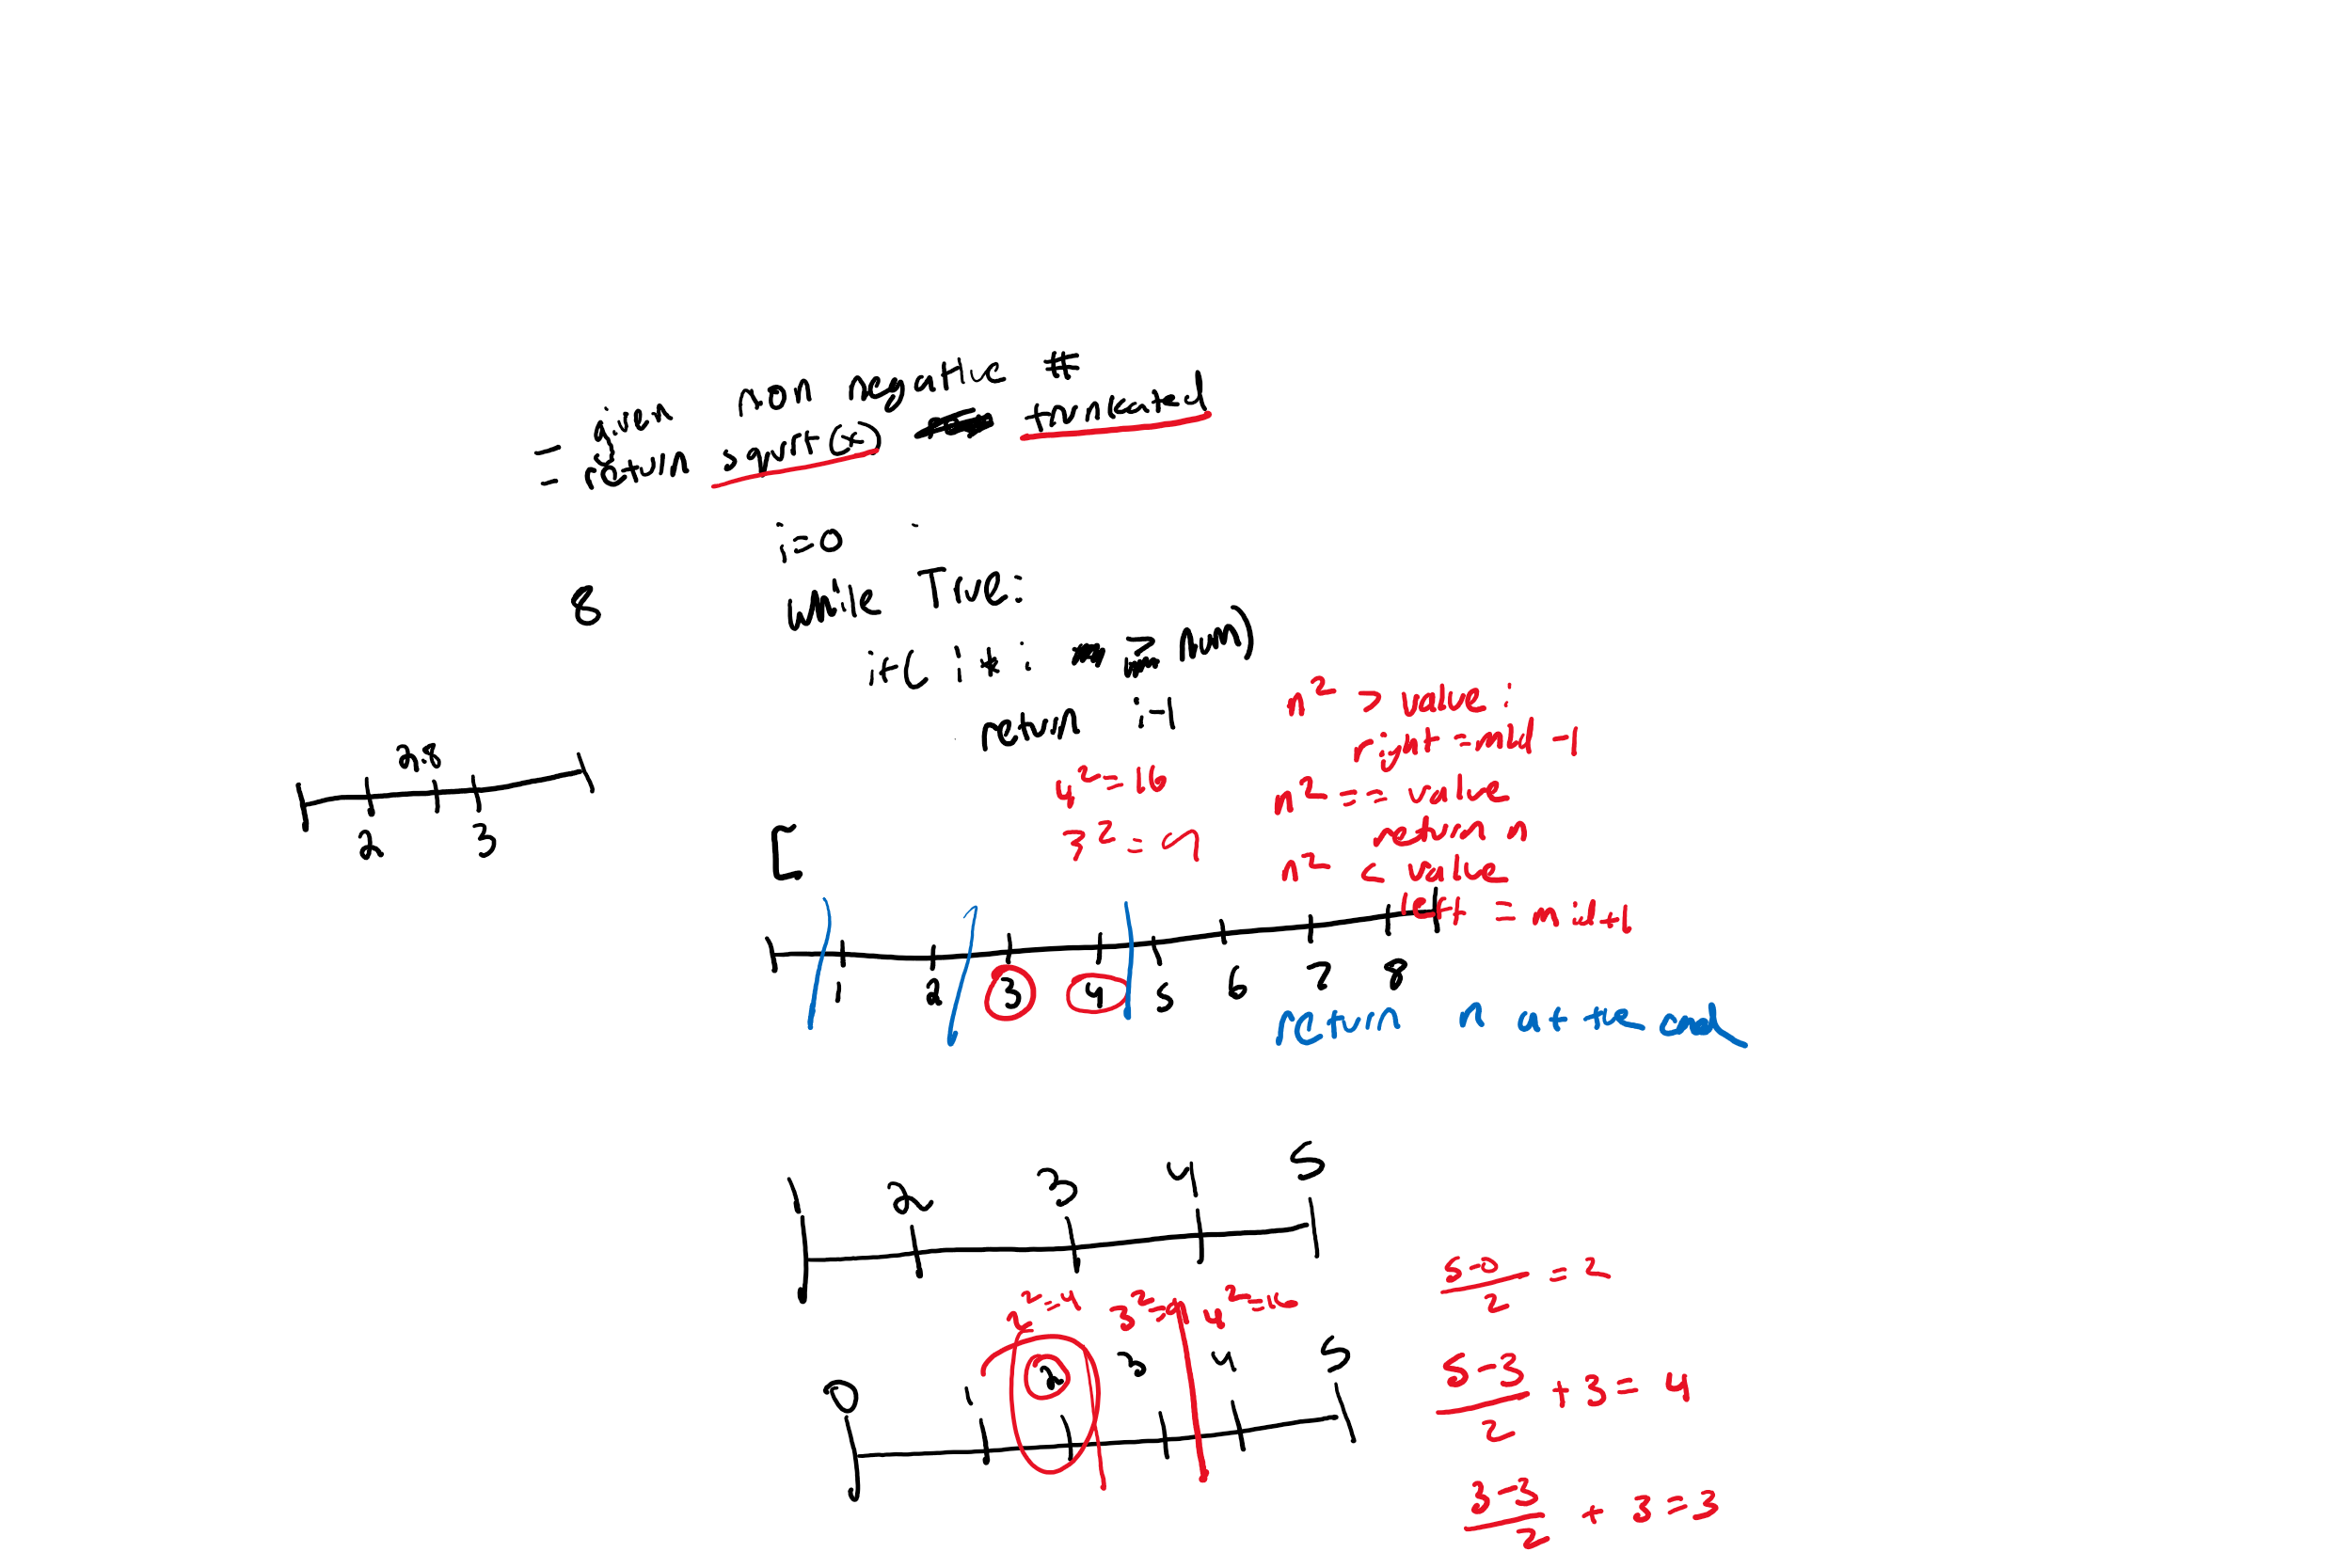 = given non negative #
= return sqrt(x) truncated
i=0
while True:
8
if( i * i > num)
return i-1
n² > value:
right = mid -1
n² == value
return n
n² < value
left = mid+1
4²=16
3²=9
2.8
2 3
[
1 2 3 4 5 6 7 8
return n at the end
1 2 3 4 5
2²=4 3²=9 4²=16
0 1 2 3 4 5
5-0/2 = 2
5-3/2 + 3 = 4
3-3/2 + 3 = 3